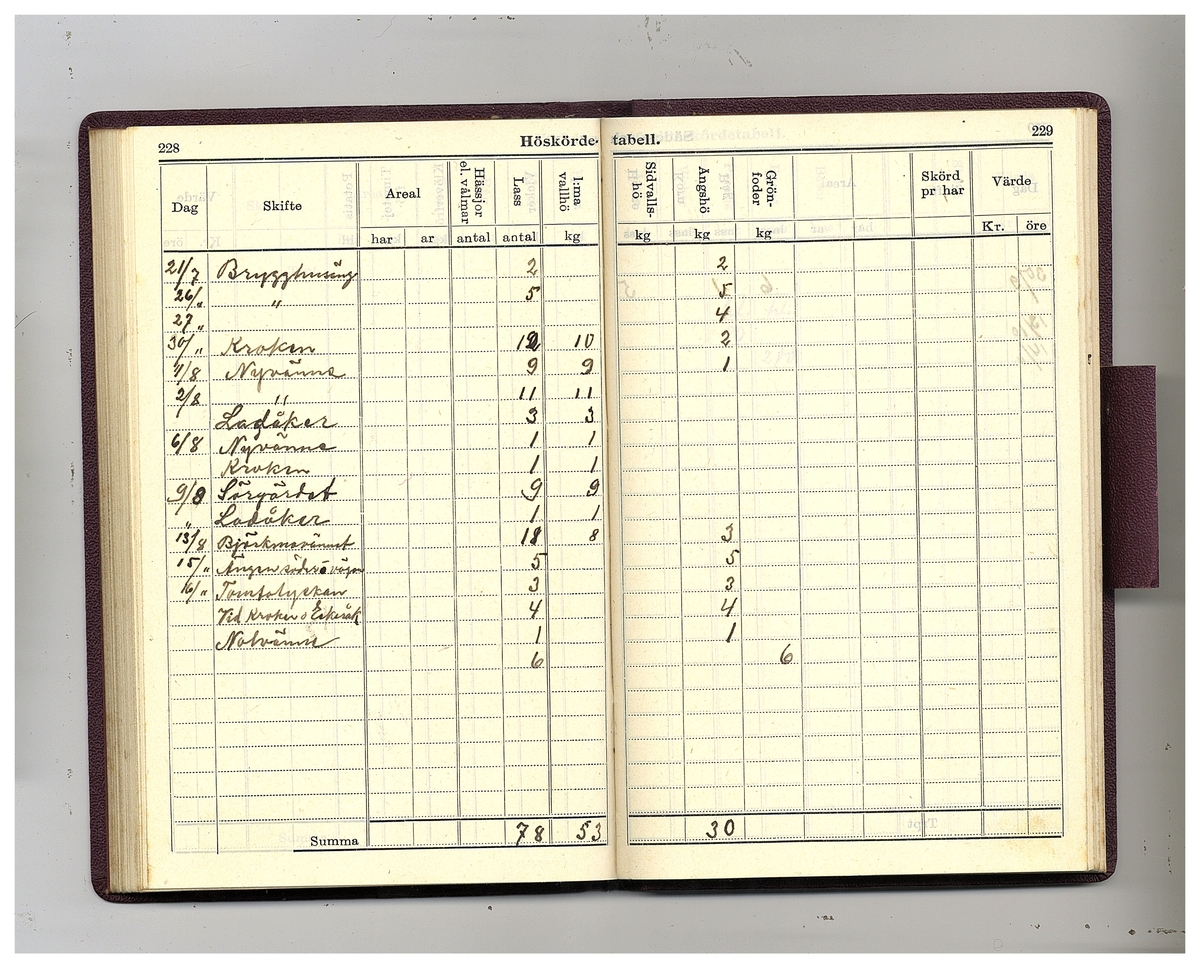 228
Höskörde-tabell.
229
Dag Skifte Areal Hässjor el. vålmar Lass 1:ma vallhö Sidvalls-hö Ängshö Grön-foder Skörd pr har Värde
har ar antal antal kg kg kg kg Kr. öre
21/7 Brygghusäng 2 2
26/" " 5 5
27 " 4
30/" Kroken 10 2
1/8 Nyvänna 9 9 1
2/8 " 11 11
Ladåker 3 3
6/8 Nyvänna 1 1
Kroken 1 1
9/8 Sörgärdet 9 9
" Ladåker 1 1
13/8 8 3
15/" Ängen söder o vägen 5 5
16/" Tomtalyckan 3 3
Vid Kroken o 4 4
1 1
6 6
Summa 78 53 30